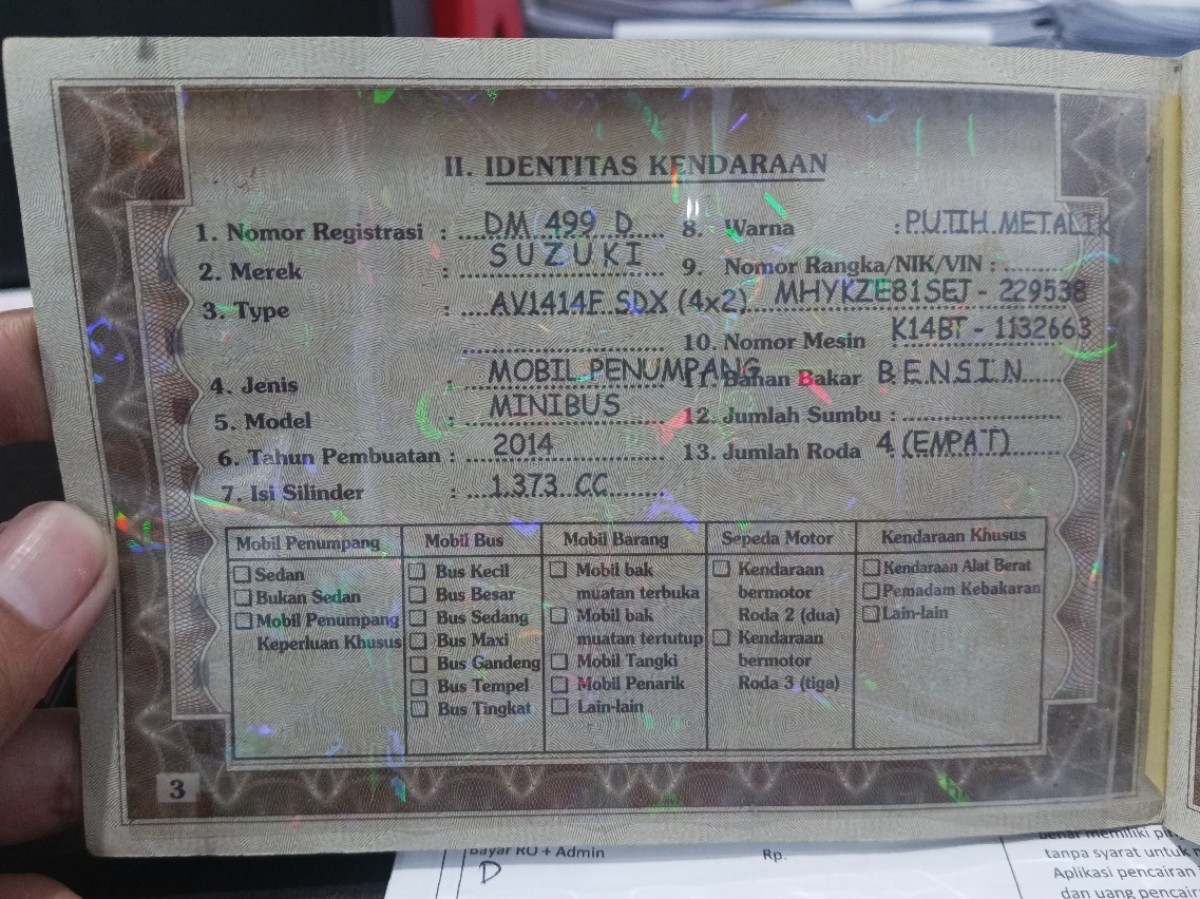 II. IDENTITAS KENDARAAN
1. Nomor Registrasi : DM 499 D
2. Merek : SUZUKI
3. Type : AV1414F SDX (4x2)
4. Jenis : MOBIL PENUMPANG
5. Model : MINIBUS
6. Tahun Pembuatan : 2014
7. Isi Silinder : 1.373 CC
8. Warna : PUTIH METALIK
9. Nomor Rangka/NIK/VIN :
MHYKZE81SEJ - 229538
10. Nomor Mesin K14BT - 1132663
11. Bahan Bakar BENSIN
12. Jumlah Sumbu :
13. Jumlah Roda 4 (EMPAT)
Mobil Penumpang
Sedan
Bukan Sedan
Mobil Penumpang
Keperluan Khusus
Mobil Bus
Bus Kecil
Bus Besar
Bus Sedang
Bus Maxi
Bus Gandeng
Bus Tempel
Bus Tingkat
Mobil Barang
Mobil bak
muatan terbuka
Mobil bak
muatan tertutup
Mobil Tangki
Mobil Penarik
Lain-lain
Sepeda Motor
Kendaraan
bermotor
Roda 2 (dua)
Kendaraan
bermotor
Roda 3 (tiga)
Kendaraan Khusus
Kendaraan Alat Berat
Pemadam Kebakaran
Lain-lain
3
Bayar RO + Admin
Rp.
D
benar memiliki
tanpa syarat untuk
Aplikasi pencairan
dan uang